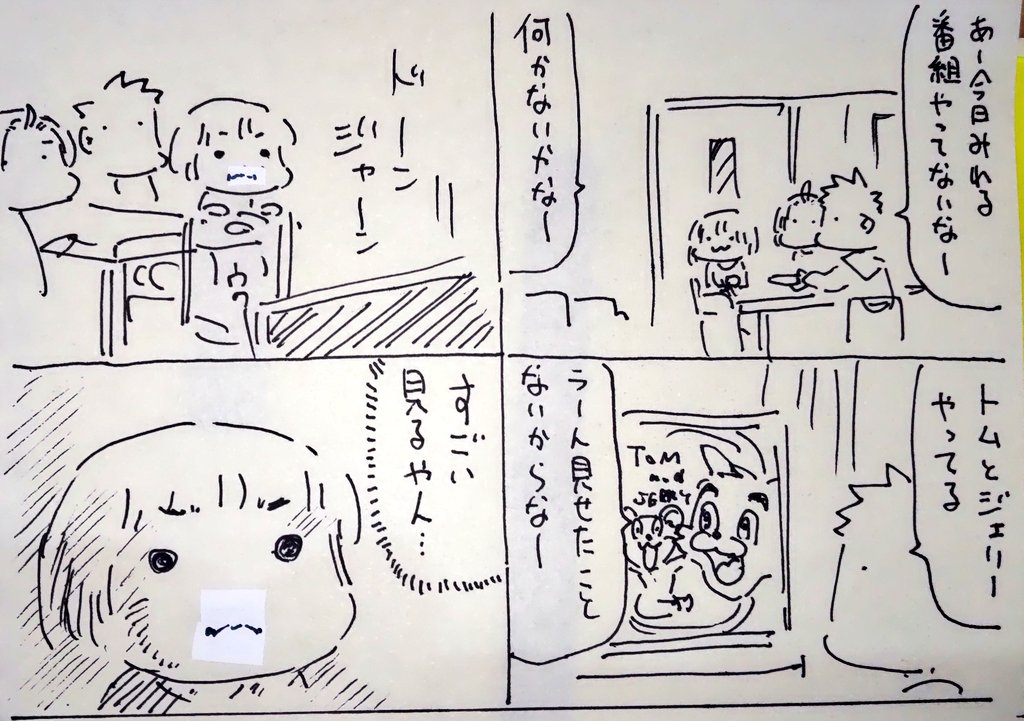 あー今日みれる
番組やってないな〜
何かないかな〜
トムとジェリー
やってる
TOM
and
JERRY
うーん見せたこと
ないからな〜
ドーン
ジャーン
すごい
見るやん…